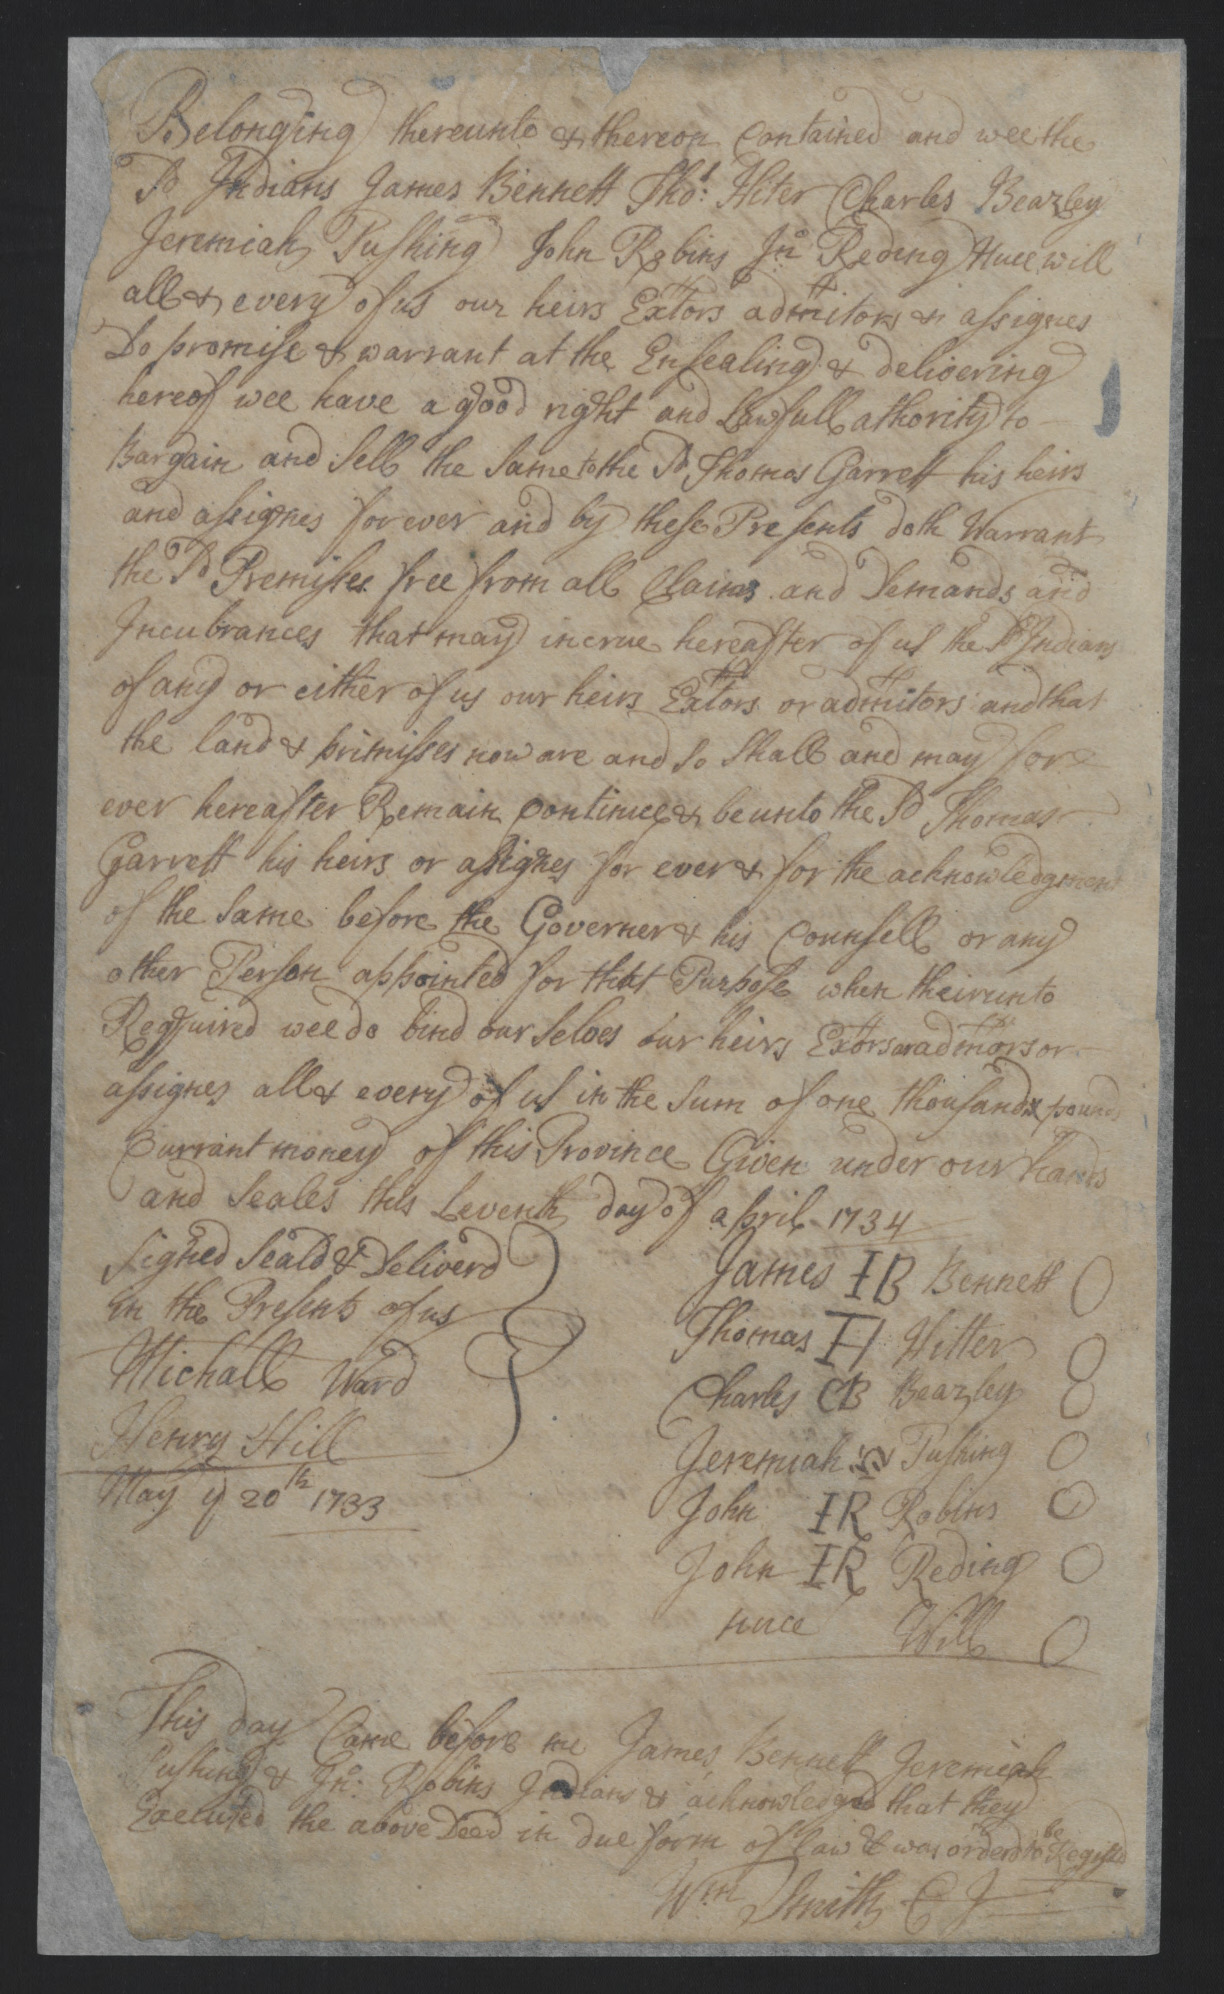 Belonging thereunto & thereon Contained and wee the
Sd Indians James Bennett Thos: Hiter Charles Beazley
Jeremiah Pushing John Robins Jno Reding Huce will
all & every of us our heirs Extors admitors & assignes
Do promise & warrant at the Ensealing & delivering
hereof wee have a good right and Lawfull athority to
Bargain and Sell the Same to the Sd Thomas Garrett his heirs
and assignes for ever and by these Presents doth Warrant
the Sd Premisses free from all Claims and Demands and
Incubrances that may incrue hereafter of us the Sd Indians
of any or either of us our heirs Extors or admitors and that
the land & primisses now are and So Shall and may for
ever hereafter Remain Continue & be unto the Sd Thomas
Garrett his heirs or assignes for ever & for the acknowledgment
of the Same before the Governer & his Counsell or any
other Person appointed for that Purpose when theirunto
Reqquired wee do bind our Selves our heirs Extors or admors or
assignes all & every of us in the Sum of one thousand pounds
Currant money of this Province Given under our hands
and Seales this Leventh day of april 1734
Signed Seald & Deliverd
in the Presents of us
Michall Ward
Henry Hill
May ye 20th 1733
James IB Bennett
Thomas H Hitter
Charles CB Beazley
Jeremiah Pushing
John IR Robins
John IR Reding
huce Will
This day Came before me James Bennett Jeremiah
Pushing & Jno: Robins Indians & acknowledged that they
Executed the above Deed in due form of law & was orderd to be Registed
Wm Smith C J